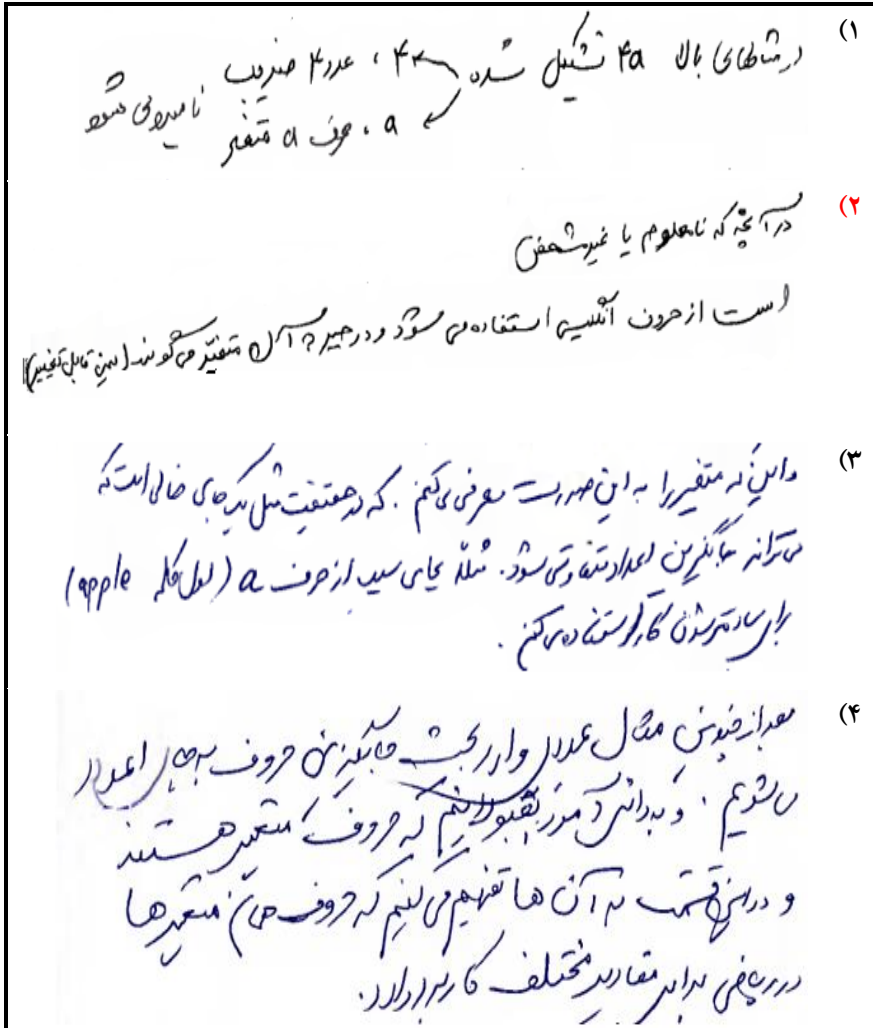 ۱)
در مثالهای بالا ۴a تشکیل شده ۴ ، عدد ۴ ضریب نامیده می شود
a ، حرف a متغیر
۲)
در آنچه که نامعلوم یا غیرمشخص
است از حروف انگلیسی استفاده می شود و در جبر به آن متغیّر می گویند (یعنی قابل تغییر)
۳)
و این که متغیر را به این صورت معرفی می کنم . که در حقیقت مثل یک جای خالی است که
می تواند جایگزین اعداد متفاوتی شود. مثلاً بجای سیب از حرف a (اول کلمه apple)
برای ساده تر شدن کار استفاده می کنم .
۴)
بعد از چندین مثال عددی وارد بحث جایگزینی حروف به جای اعداد
می شویم . و به دانش آموز بقبولانیم که حروف متغیر هستند
و در این قسمت به آن ها تفهیم می کنیم که حروف همان متغیرها
در ریاضی برای مقادیر مختلف کاربرد دارد.